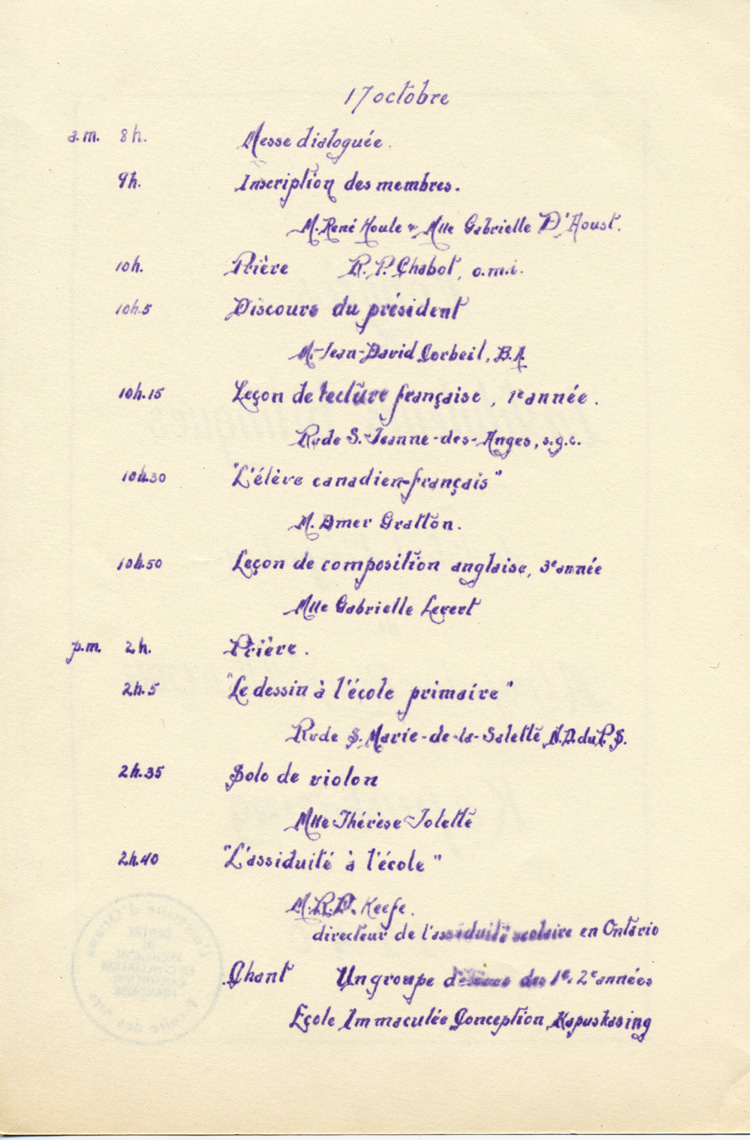 17 octobre
a.m. 8h. Messe dialoguée.
9h. Inscription des membres.
M. René Houle & Mlle Gabrielle D'Aoust.
10h. Prière R. P. Chabot, o.m.i.
10h.5 Discours du président
M. Jean-David Corbeil, B.A.
10h.15 Leçon de lecture française, 1e année.
Rvde S. Jeanne-des-Anges, s.g.c.
10h.30 "L'élève canadien-français"
M. Omer Gratton.
10h.50 Leçon de composition anglaise, 3e année
Mlle Gabrielle Levert
p.m. 2h. Prière.
2h.5 "Le dessin à l'école primaire"
Rvde S. Marie-de-la-Salette N.D. du P.S.
2h.35 Solo de violon
Mlle Thérèse Jolette
2h.40 "L'assiduité à l'école"
M. R. P. Keefe.
directeur de l'assiduité scolaire en Ontario
Chant Un groupe d'élèves des 1e, 2e années
École Immaculée Conception, Kapuskasing